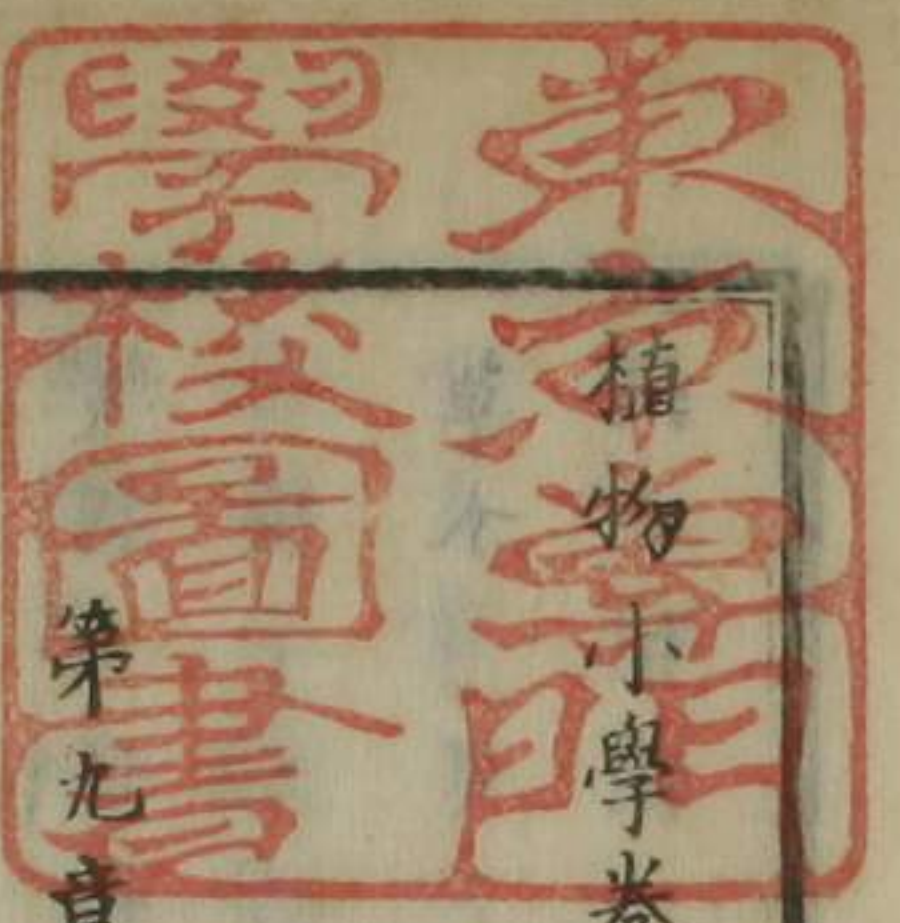 東京專門
學校圖書
植物小學卷
第九章